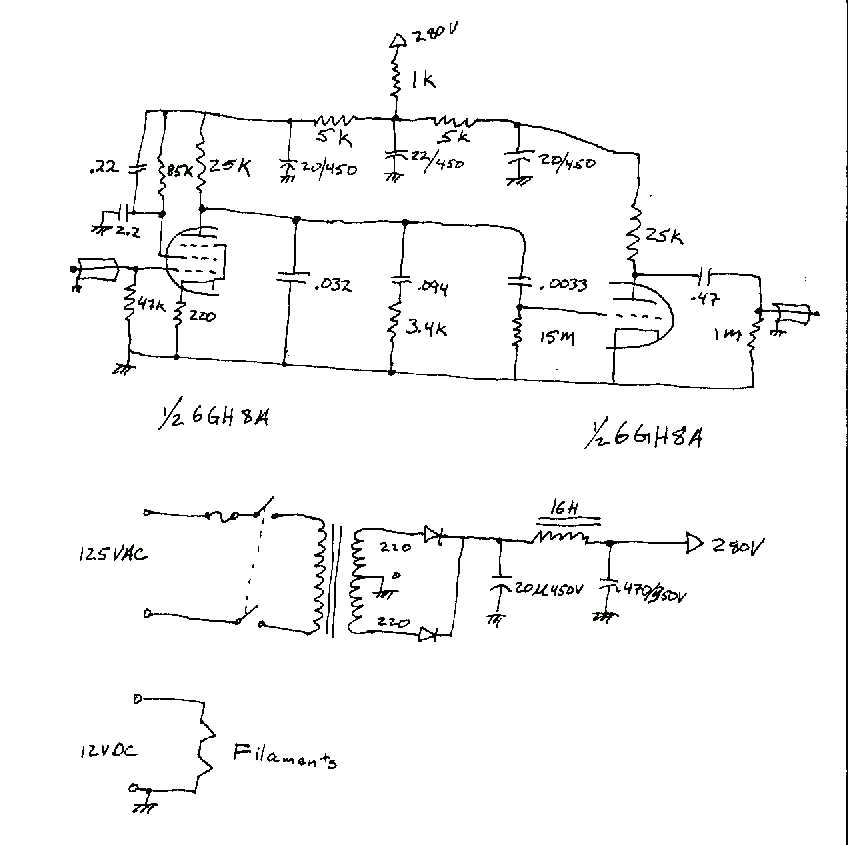 280V
1K
5K
5K
.22
85K
25K
20/450
22/450
20/450
2.2
25K
.47
47K
220
.032
.094
3.4K
.0033
15M
1M
1/2 6GH8A
1/2 6GH8A
16H
125VAC
220
0
220
20μ450V
470/350V
280V
12VDC
Filaments